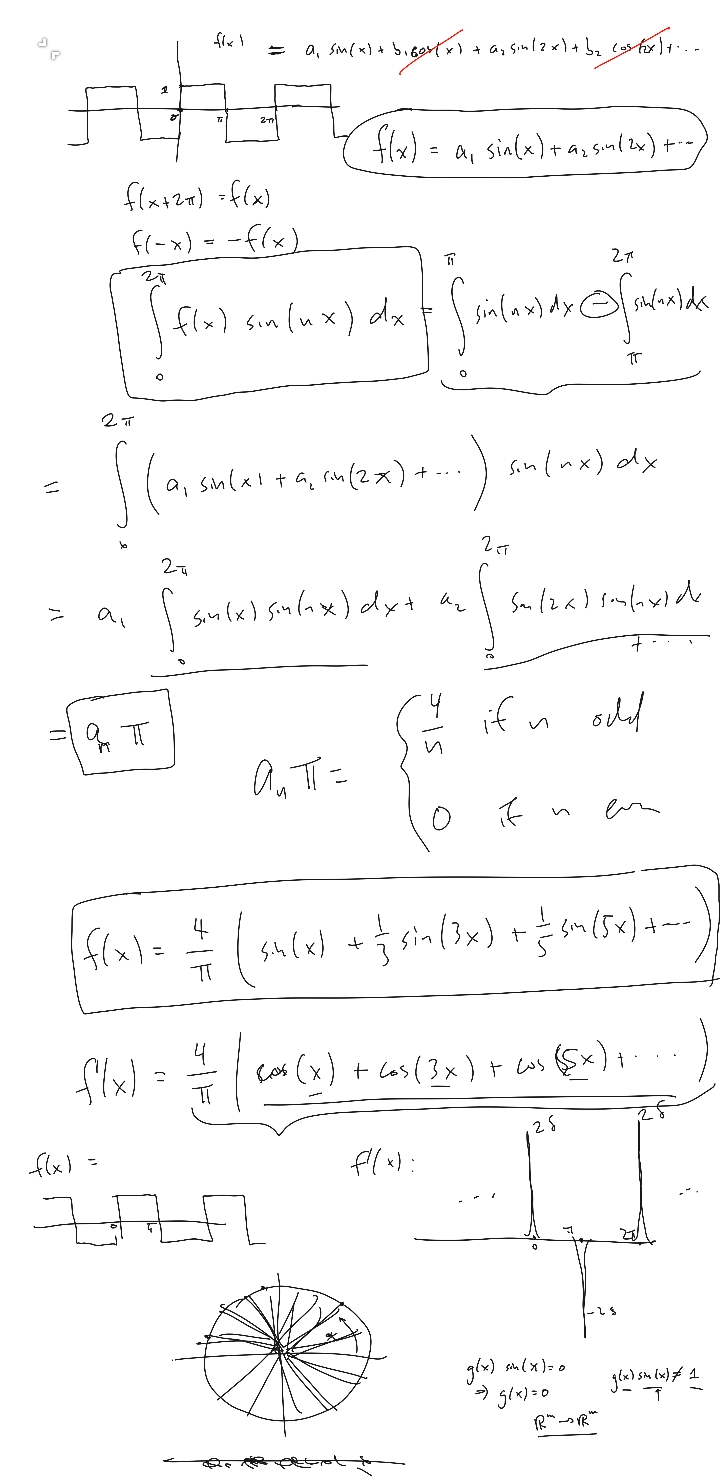 f(x) = a₁ sin(x) + b₁ cos(x) + a₂ sin(2x) + b₂ cos(2x) + ...
1
0 π 2π
f(x) = a₁ sin(x) + a₂ sin(2x) + ...
f(x+2π) = f(x)
f(-x) = -f(x)
∫₀^{2π} f(x) sin(nx) dx = ∫₀^{π} sin(nx) dx - ∫_{π}^{2π} sin(nx) dx
= ∫₀^{2π} (a₁ sin(x) + a₂ sin(2x) + ...) sin(nx) dx
= a₁ ∫₀^{2π} sin(x) sin(nx) dx + a₂ ∫₀^{2π} sin(2x) sin(nx) dx
+ ...
= aₙ π
aₙ π = { 4/n if n odd
0 if n even
f(x) = 4/π ( sin(x) + 1/3 sin(3x) + 1/5 sin(5x) + ... )
f'(x) = 4/π ( cos(x) + cos(3x) + cos(5x) + ... )
f(x) =
0 π
f'(x) :
2δ 2δ
... ...
0 π 2π
-2δ
x
g(x) sin(x) = 0
⇒ g(x) = 0
g(x) sin(x) ≠ 1
ℝᵐ → ℝᵐ